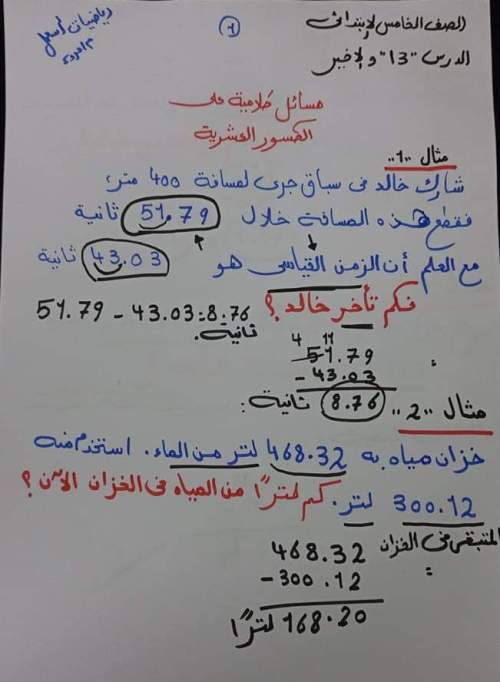 الصف الخامس الابتدائى
الدرس "13" والاخير
1
رياضيات أسهل
مسائل كلامية على
الكسور العشرية
مثال "1"
شارك خالد فى سباق جرى لمسافة 400 متر،
فقطع هذه المسافة خلال 51.79 ثانية
مع العلم أن الزمن القياسى هو 43.03 ثانية
فكم تأخر خالد؟
51.79 - 43.03 = 8.76
ثانية.
4 11
51.79
- 43.03
8.76 ثانية
مثال "2" :
خزان مياه به 468.32 لتر من الماء. استخدم منه
300.12 لتر. كم لترًا من المياه فى الخزان الآن؟
المتبقى فى الخزان
=
468.32
- 300.12
168.20 لترًا